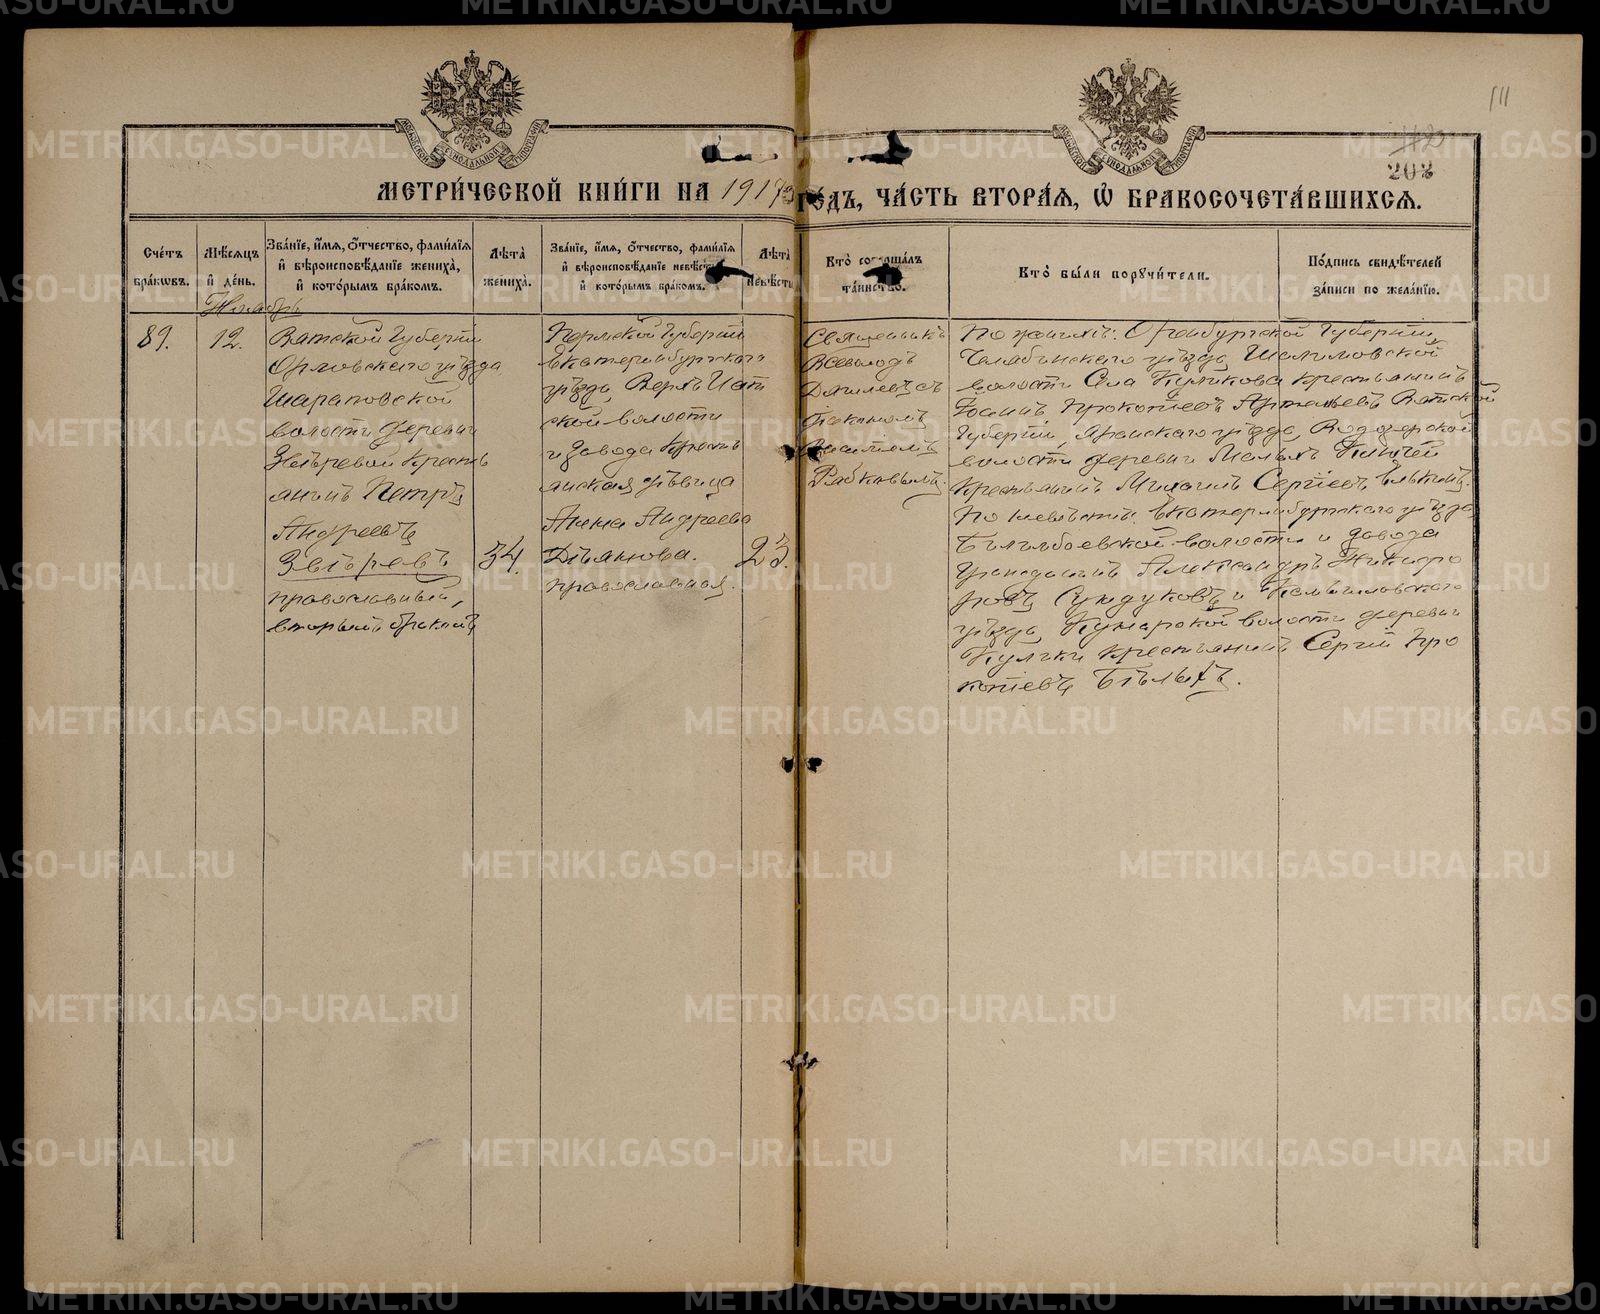 111
112
202
МОСКОВСКОЙ СѴНОДАЛЬНОЙ ТИПОГРАФІИ
МОСКОВСКОЙ СѴНОДАЛЬНОЙ ТИПОГРАФІИ
МЕТРИ́ЧЕСКОЙ КНИ́ГИ НА 1917 ГО́ДЪ, ЧА́СТЬ ВТОРА́Я, Ѡ БРАКОСОЧЕТА́ВШИХСЯ.
Сче́тъ бра́кѡвъ.
Мѣ́сяцъ и҆ де́нь.
Зва́нїе, и҆́мя, ѻ҆́тчество, фами́лїя и҆ вѣроисповѣ́данїе жениха̀, и҆ кото́рымъ бра́комъ.
Лѣ́та жениха̀.
Зва́нїе, и҆́мя, ѻ҆́тчество, фами́лїя и҆ вѣроисповѣ́данїе невѣ́сты, и҆ кото́рымъ бра́комъ.
Лѣ́та невѣ́сты
Кто̀ соверша́лъ та́инство.
Кто̀ бы́ли порꙋчи́тели.
По́дпись свидѣ́телей за́писи по жела́нїю.
Ноябрь
89.
12.
Вятской Губерніи
Орловскаго уѣзда
Шараповской
волости деревни
Звѣревой кресть
янинъ Петръ
Андреевъ
Звѣревъ
православный,
вторымъ бракомъ
34.
Пермской Губерніи
Екатеринбургскаго
уѣзда, Верхъ Исет
ской волости
и завода кресть
янская дѣвица
Анна Андреева
Дьякова.
православная.
23.
Священникъ
Всеволодъ
съ
Діакономъ
Василіемъ
Рябковымъ.
По женихѣ: Оренбургской Губерніи
Челябинскаго уѣзда,
волости Села Куликова крестьянинъ
Іосифъ Прокопіевъ Вятской
Губерніи, Яранскаго уѣзда, Водозерской
волости деревни Малыхъ
крестьянинъ Михаилъ Сергіевъ Елькинъ.
По невѣстѣ: Екатеринбургскаго уѣзда,
Билимбаевской волости и завода
гражданинъ Александръ Никифо
ровъ Сундуковъ и Камышловскаго
уѣзда, волости деревни
крестьянинъ Сергій Про
копіевъ Бѣлыхъ.
METRIKI.GASO-URAL.RU